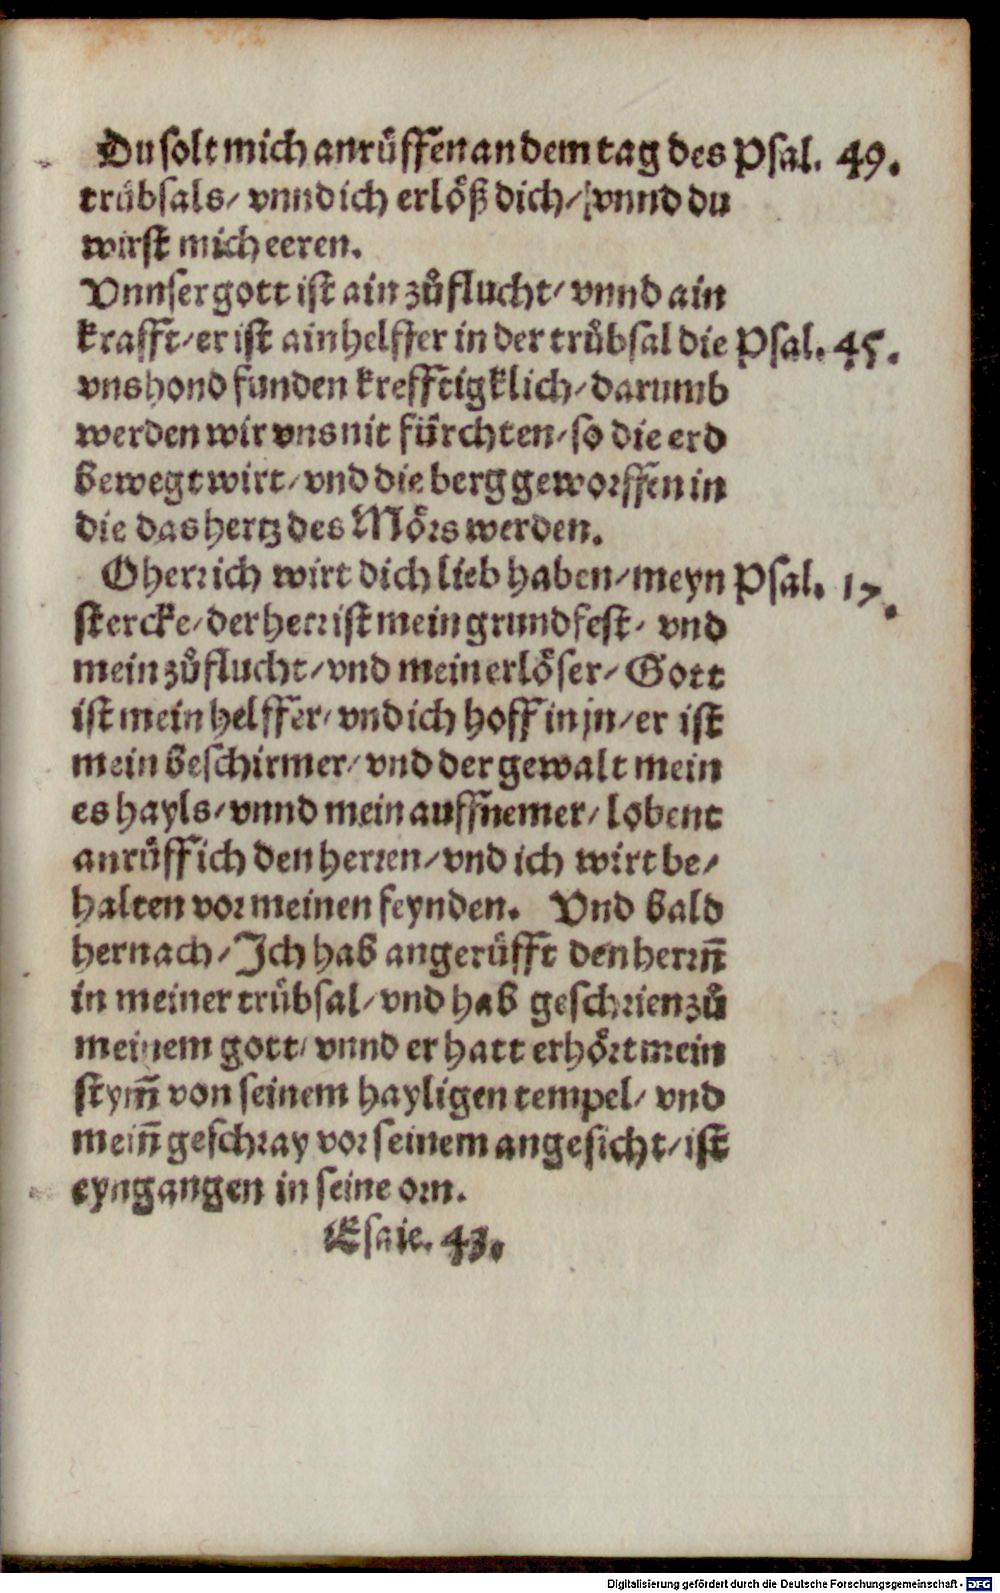 Du solt mich anrůffen an dem tag des Psal. 49.
trůbsals/ vnnd ich erlöß dich/ vnnd du
wirst mich eeren.
Vnnser gott ist ain zůflucht/ vnnd ain
krafft/ er ist ain helffer in der trůbsal die Psal. 45.
vns hond funden krefftigklich/ darumb
werden wir vns nit fürchten/ so die erd
bewegt wirt/ vnd die berg geworffen in
die das hertz des Mörs werden.
O herr ich wirt dich lieb haben/ meyn Psal. 17.
stercke/ der herr ist mein grundfest/ vnd
mein zůflucht/ vnd mein erlöser/ Gott
ist mein helffer/ vnd ich hoff in jn/ er ist
mein beschirmer/ vnd der gewalt mein
es hayls/ vnnd mein auffnemer/ lobent
anrůff ich den herren/ vnd ich wirt be/
halten vor meinen feynden. Vnd bald
hernach/ Ich hab angerůfft den herrn̄
in meiner trůbsal/ vnd hab geschrien zů
meinem gott/ vnnd er hatt erhört mein
stym̄ von seinem hayligen tempel/ vnd
mein̄ geschray vor seinem angesicht/ ist
eyngangen in seine orn.
Esaie. 43.
Digitalisierung gefördert durch die Deutsche Forschungsgemeinschaft - DFG